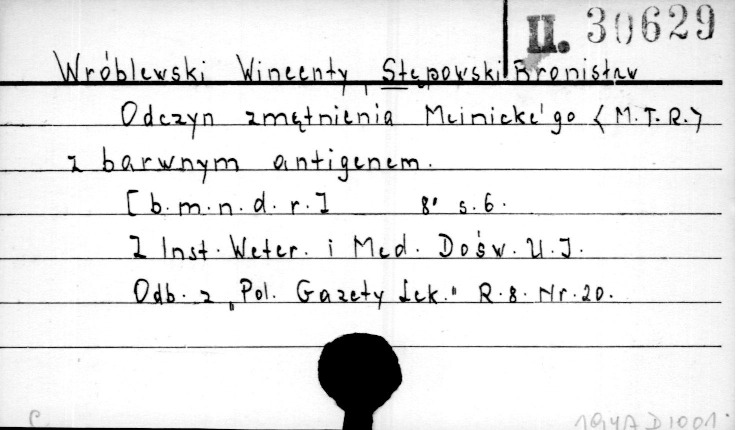 II. 30629
Wróblewski Wincenty, Stępowski Bronisław
Odczyn zmętnienia Meinicke'go (M.T.R.)
z barwnym antigenem.
[b.m.n.d.r.] 8° s.6.
Z Inst. Weter. i Med. Dośw. U.J.
Odb. z „Pol. Gazety Lek." R.8. Nr.20.